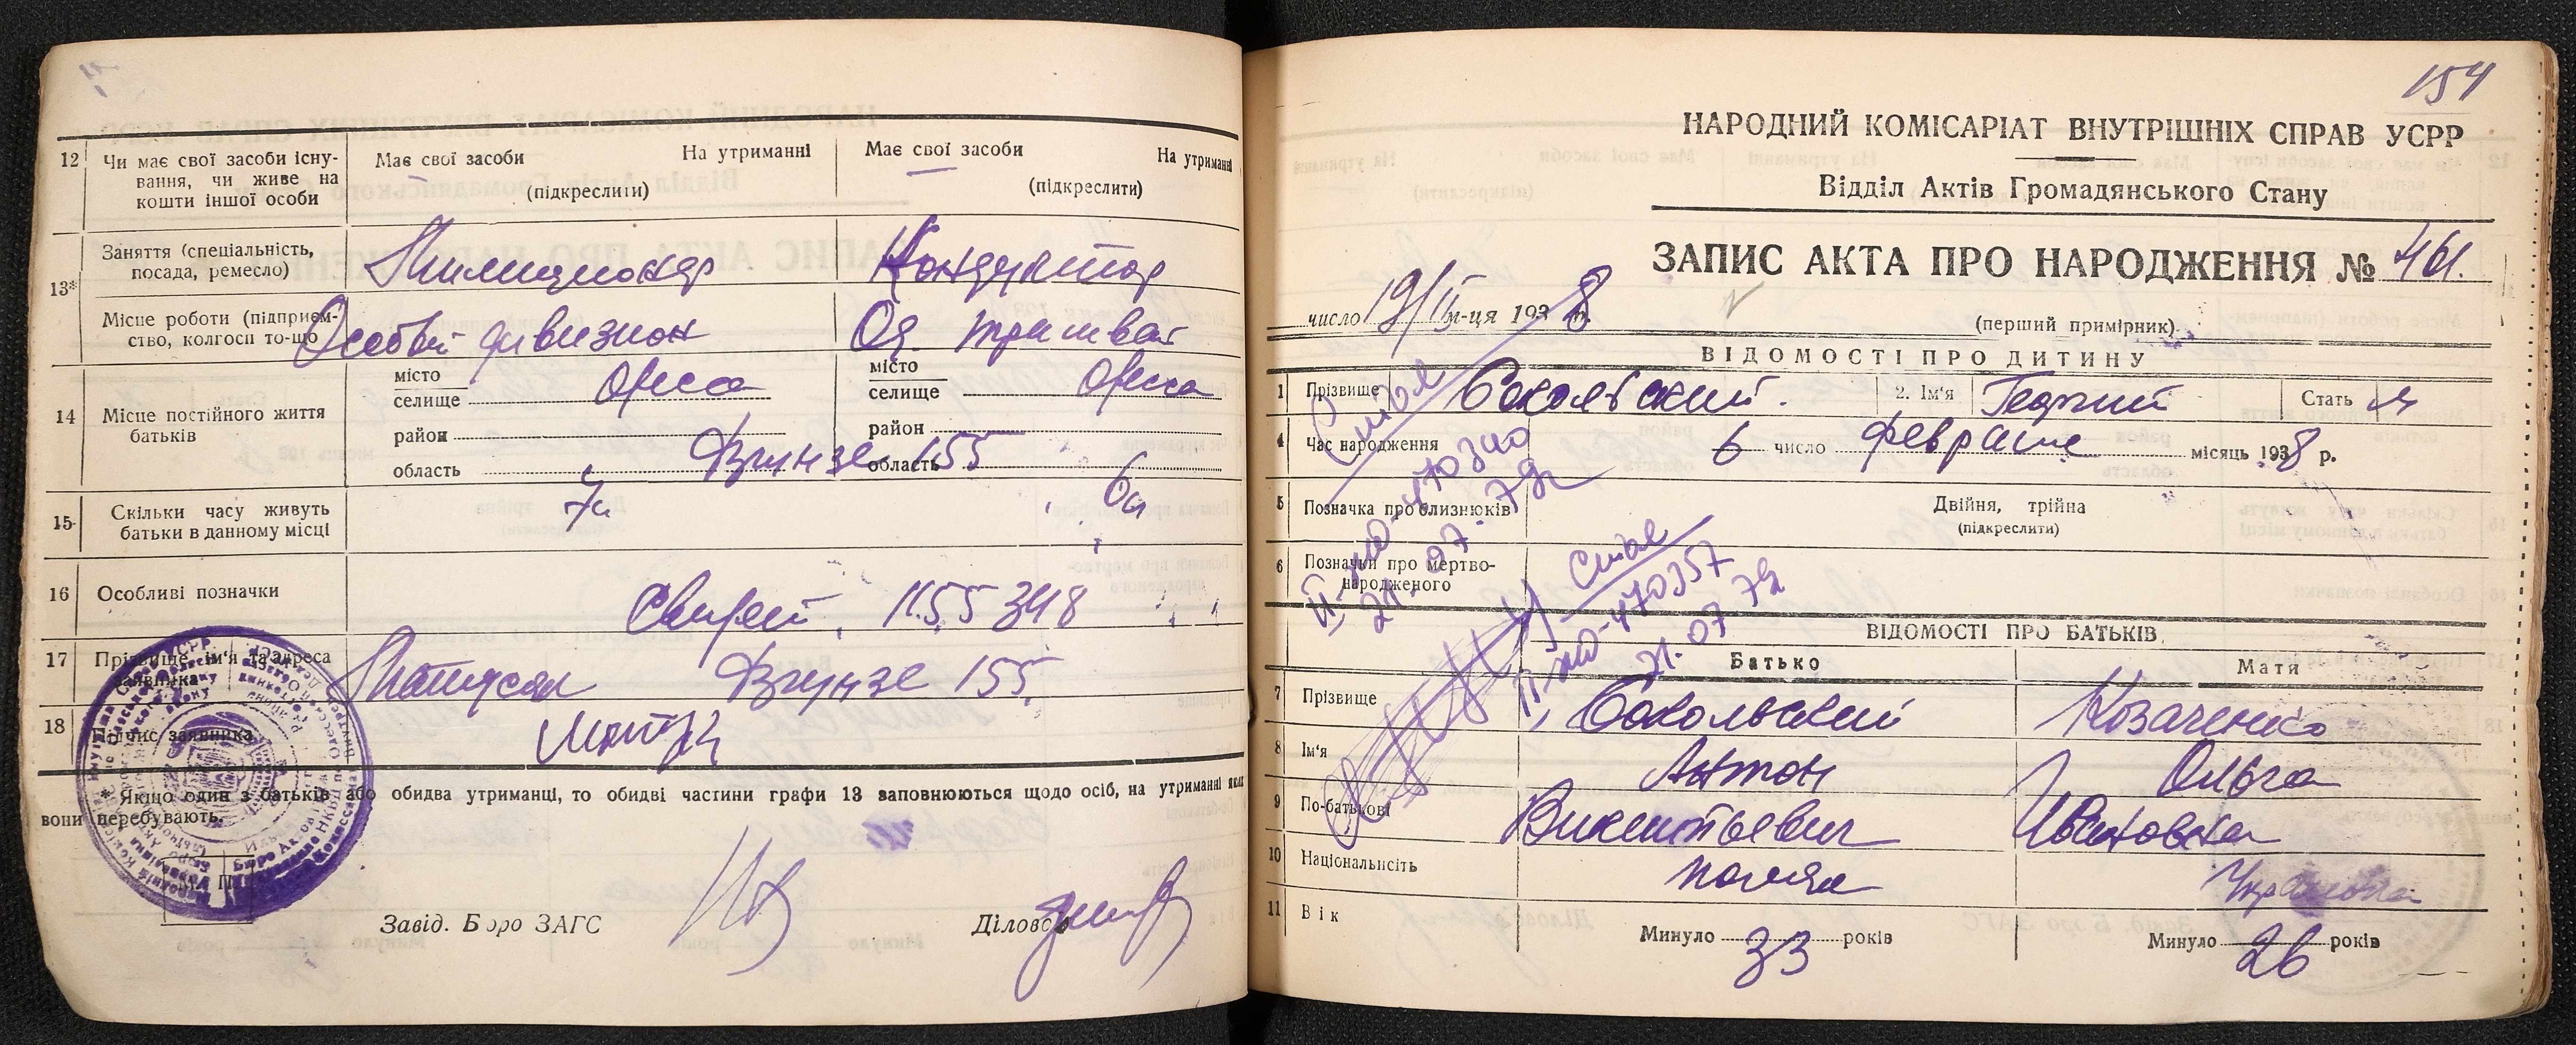 12 Чи має свої засоби існу-
вання, чи живе на
кошти іншої особи
Має свої засоби На утриманні
(підкреслити)
Має свої засоби На утриманні
(підкреслити)
13* Заняття (спеціальність,
посада, ремесло)
Милиционер
Кондуктор
Місце роботи (підприєм-
ство, колгосп то-що
Особый дивизион
Од. трамвай
14 Місце постійного життя
батьків
місто
селище Одесса
район
область
місто
селище Одесса
район
область
Фрунзе 155
15 Скільки часу живуть
батьки в данному місці
16 Особливі позначки
17 Прізвище, ім'я та адреса
заявника
Фрунзе 155
18 Підпис заявника
* Якщо один з батьків або обидва утриманці, то обидві частини графи 13 заповнюються щодо осіб, на утриманні яких
вони перебувають.
М. П.
Завід. Бюро ЗАГС
Діловод
154
НАРОДНИЙ КОМІСАРІАТ ВНУТРІШНІХ СПРАВ УСРР
Відділ Актів Громадянського Стану
ЗАПИС АКТА ПРО НАРОДЖЕННЯ № 461.
число 19/II м-ця 1938 р.
(перший примірник)
ВІДОМОСТІ ПРО ДИТИНУ
1 Прізвище Сокольский. 2. Ім'я Георгий Стать м
4 Час народження 6 число февраля місяць 1938 р.
5 Позначка про близнюків
Двійня, трійна
(підкреслити)
6 Позначки про мертво-
народженого
II-ЖД-470357
21.07.79
ВІДОМОСТІ ПРО БАТЬКІВ
Батько Мати
7 Прізвище Сокольский Козаченко
8 Ім'я Антон Ольга
9 По-батькові Викентьевич Ивановна
10 Національність поляк Украинка
11 Вік
Минуло 33 років
Минуло 26 років